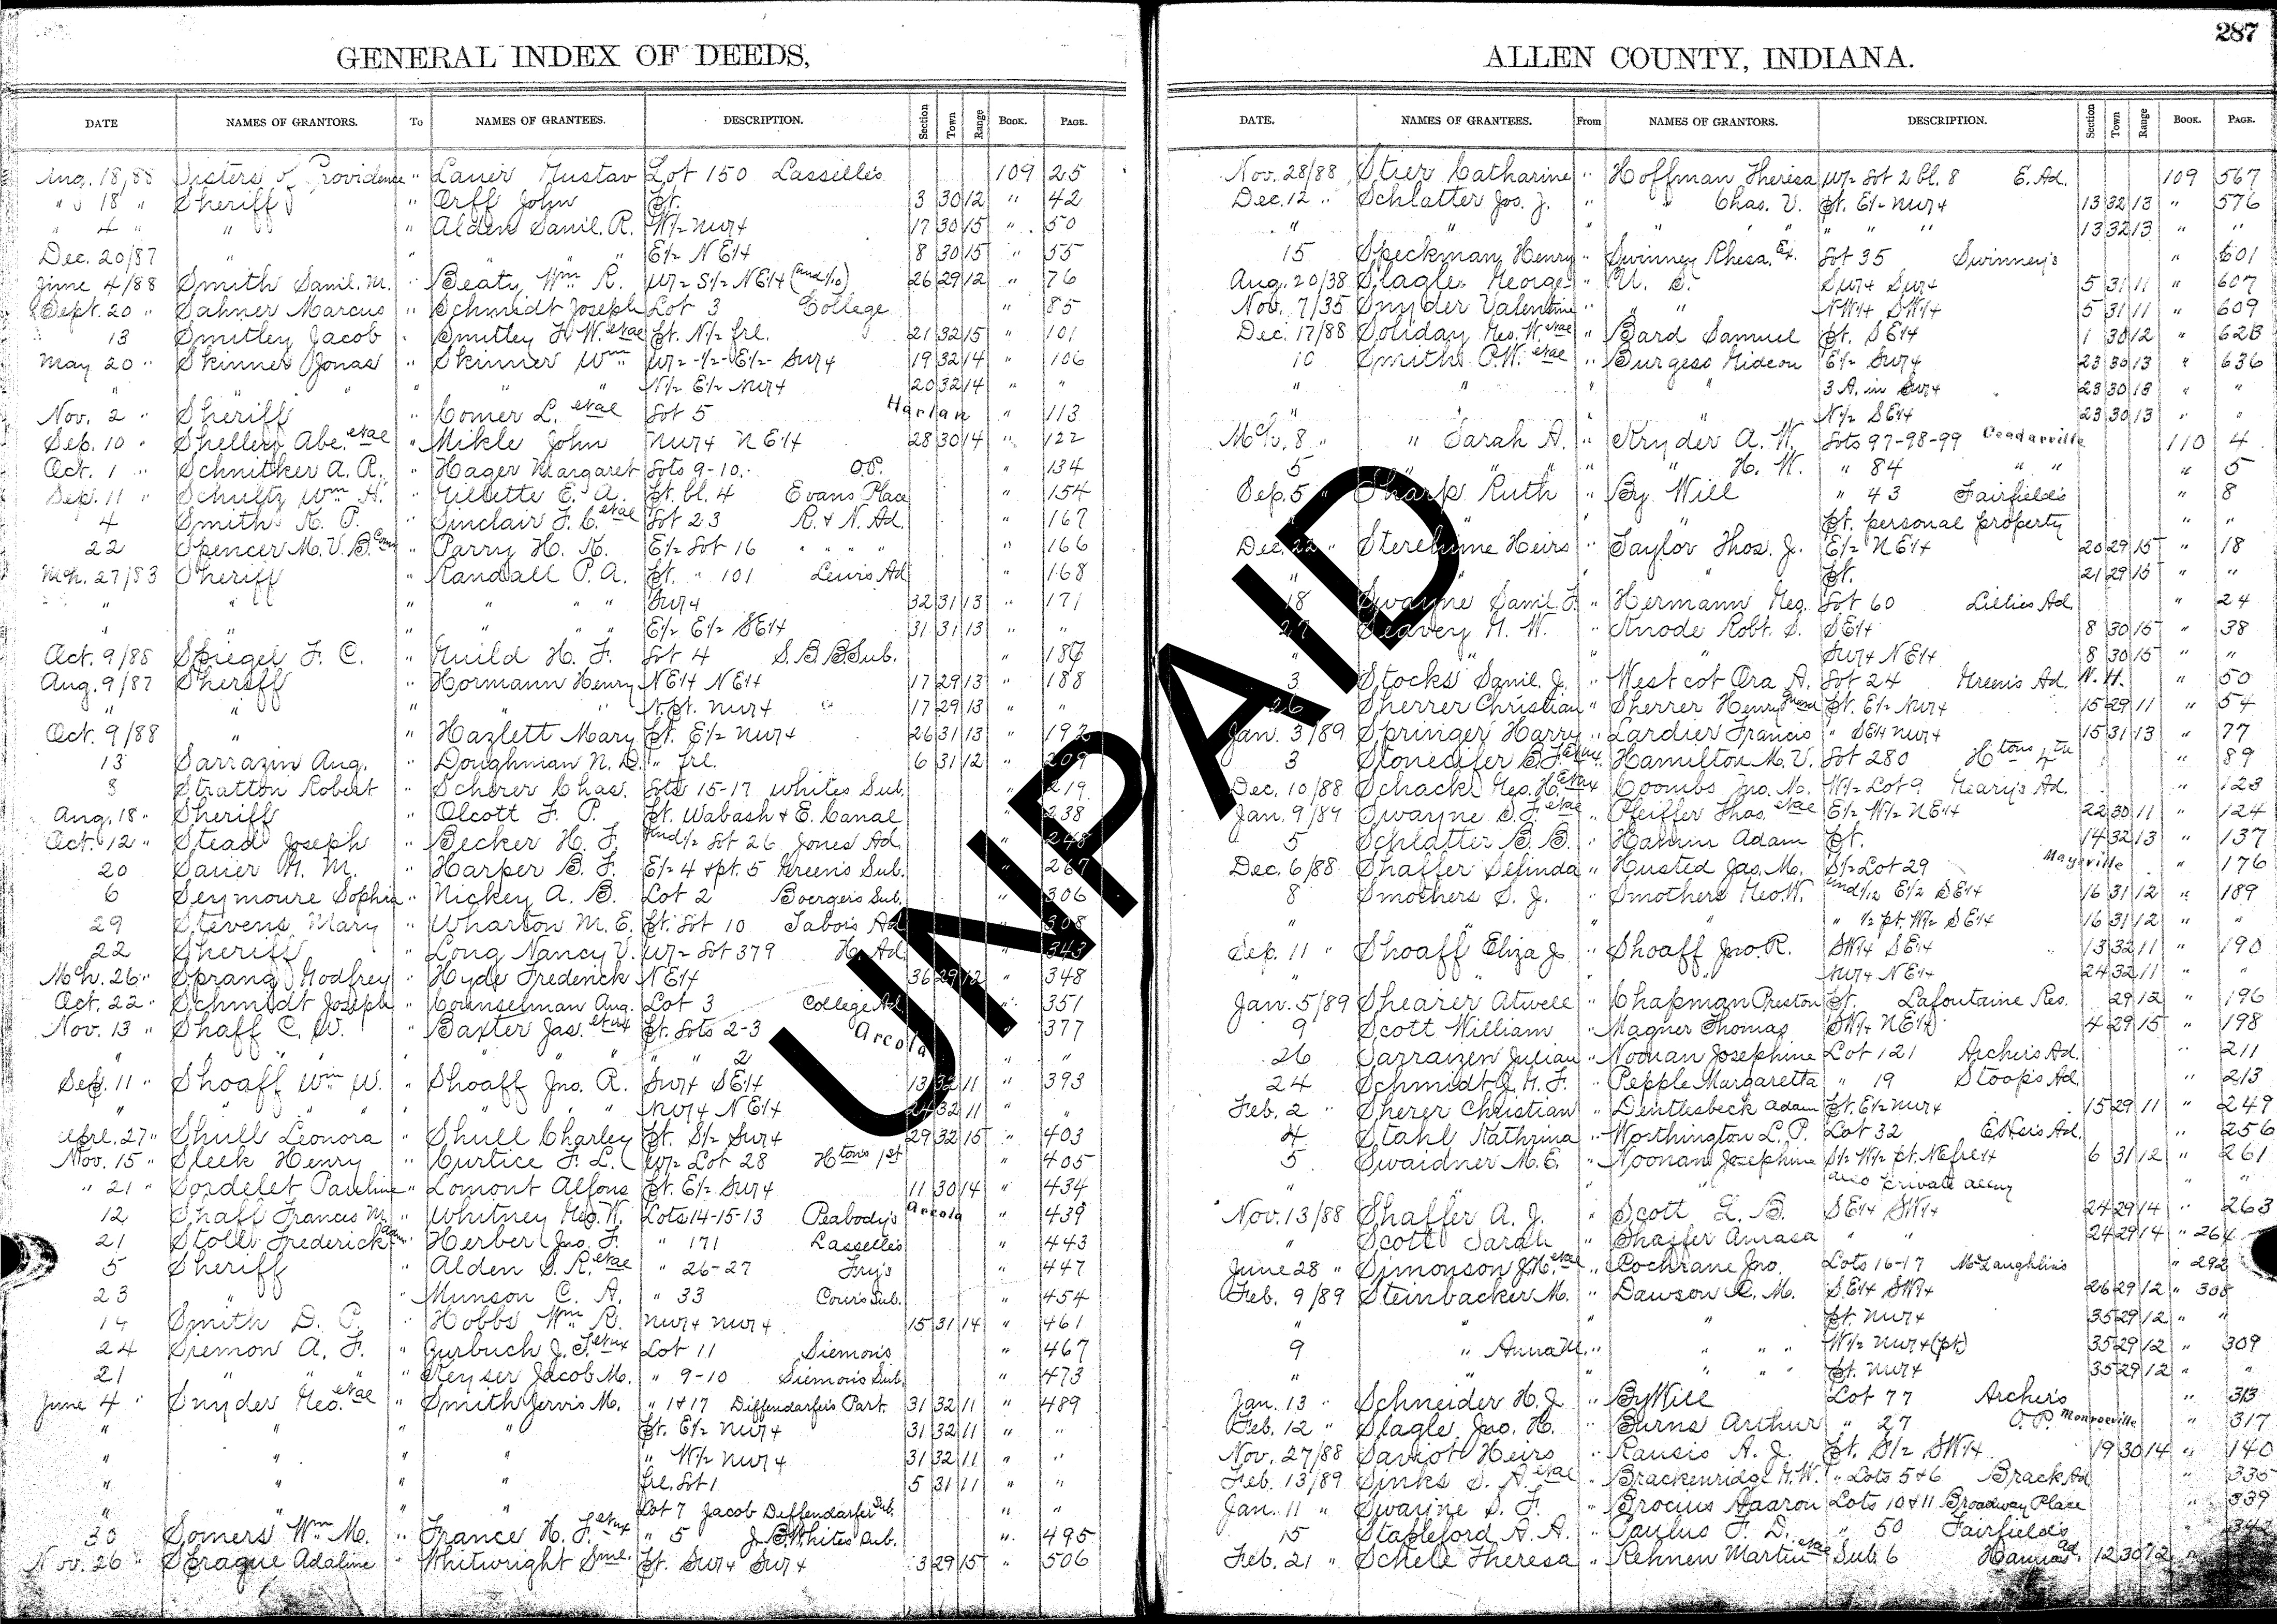 287
GENERAL INDEX OF DEEDS,
DATE NAMES OF GRANTORS. To NAMES OF GRANTEES. DESCRIPTION. Section Town Range BOOK. PAGE.
Aug. 18/88 Sisters of Providence " Lauer Gustav Lot 150 Lasselle's 109 25
" 18 " Sheriff " Orff John Pt. 3 30 12 " 42
" 4 " " " Alden Saml. R. W1/2 NW1/4 17 30 15 " 50
Dec. 20/87 " " " " E1/2 NE1/4 8 30 15 " 55
June 4/88 Smith Saml. M. " Beaty Wm R. W1/2 S1/2 NE1/4 (und 1/10) 26 29 12 " 76
Sept. 20 " Sahner Marcus " Schmidt Joseph Lot 3 College " 85
13 Smitley Jacob " Smitley F. W. etal Pt. N1/2 frl. 21 32 15 " 101
May 20 " Skinner Jonas " Skinner Wm W1/2 - 1/2 - E1/2 - SW1/4 19 32 14 " 106
" " " " N1/2 E1/2 NW1/4 20 32 14 " "
Nov. 2 " Sheriff " Comer L. etal Lot 5 Harlan " 113
Sep. 10 " Shellery Abe. etal " Mikle John NW1/4 NE1/4 28 30 14 " 122
Oct. 1 " Schnitker A. R. " Hager Margaret Lots 9-10. O.P. " 134
Sep. 11 " Schultz Wm A. " Gillette E. A. Pt. bl. 4 Evans Place " 154
4 Smith K. P. " Sinclair F. C. etal Lot 23 R. & N. Ad. " 167
22 Spencer M. V. B. Com " Parry H. K. E1/2 Lot 16 " " " " " 166
Mch. 27/83 Sheriff " Randall P. A. Pt. " 101 Lewis Ad " 168
" " " " " SW1/4 32 31 13 " 171
" " " " " E1/2 E1/2 SE1/4 31 31 13 " "
Oct. 9/88 Spiegel F. C. " Guild H. F. Lot 4 S. B. B. Sub. " 186
Aug. 9/87 Sheriff " Hormann Henry NE1/4 NE1/4 17 29 13 " 188
" " " " " N.pt. NW1/4 17 29 13 " "
Oct. 9/88 " " Hazlett Mary Pt. E1/2 NW1/4 26 31 13 " 192
13 Sarrazin Aug. " Doughman N. D. " frl. 6 31 12 " 209
8 Stratton Robert " Scherer Chas. Lots 15-17 Whites Sub. " 219
Aug. 18 " Sheriff " Olcott F. P. Pt. Wabash & E. Canal " 238
Oct. 12 " Stead Joseph " Becker H. F. und 1/2 Lot 26 Jones Ad. " 248
20 Sauer G. M. " Harper B. F. E1/2 4 & pt. 5 Green's Sub. " 267
6 Seymoure Sophia " Nickey A. B. Lot 2 Boerger's Sub. " 306
29 Stevens Mary " Wharton M. E. Pt. Lot 10 Tabor's Ad " 308
22 Sheriff " Long Nancy V. W1/2 Lot 379 H. Ad. " 343
Mch. 26 " Sprang Godfrey " Hyde Frederick NE1/4 36 29 12 " 348
Oct. 22 " Schmidt Joseph " Counselman Aug. Lot 3 College Ad. " 351
Nov. 13 " Shaff C. W. " Baxter Jas. etux Pt. Lots 2-3 Arcola " 377
" " " " " 2 " "
Sep. 11 " Shoaff Wm W. " Shoaff Jno. R. SW1/4 SE1/4 13 32 11 " 393
" " " " " NW1/4 NE1/4 24 32 11 " "
Apl. 27 " Shull Leonora " Shull Charley Pt. S1/2 SW1/4 29 32 15 " 403
Nov. 15 " Sleek Henry " Curtice F. L. W1/2 Lot 28 Htons 1st " 405
" 21 " Sordelet Pauline " Lomont Alfons Pt. E1/2 SW1/4 11 30 14 " 434
12 Shaff Francis M. " Whitney Geo. W. Lots 14-15-13 Peabody's Arcola " 439
21 Stoll Frederick " Herber Jno. F. " 171 Lasselle's " 443
5 Sheriff " Alden S. R. etal " 26-27 Fry's " 447
23 " " Munson C. A. " 33 Cour's Sub. " 454
14 Smith D. P. " Hobbs Wm R. NW1/4 NW1/4 15 31 14 " 461
24 Siemon A. F. " Zurbuch J. F. etux Lot 11 Siemon's " 467
21 " " " " Keyser Jacob M. " 9-10 Siemon's Sub. " 473
June 4 " Snyder Geo. etal " Smith Jervis M. " 1 & 17 Diffendarfer's Part. 31 32 11 " 489
" " " " Pt. E1/2 NW1/4 31 32 11 " "
" " " " " W1/2 NW1/4 31 32 11 " "
" " " " frl. Lot 1 5 31 11 " "
" " " " Lot 7 Jacob Deffendarfer Sub. " "
30 Somers Wm M. " France H. F. etux " 5 J. B. Whites Sub. " 495
Nov. 26 " Sprague Adaline " Whitwright Sml. Pt. SW1/4 SW1/4 3 29 15 " 506
ALLEN COUNTY, INDIANA.
DATE. NAMES OF GRANTEES. From NAMES OF GRANTORS. DESCRIPTION. Section Town Range BOOK. PAGE.
Nov. 28/88 Stier Catharine " Hoffman Theresa W1/2 Lot 2 bl. 8 E. Ad. 109 567
Dec. 12 " Schlatter Jos. J. " " Chas. V. Pt. E1/2 NW1/4 13 32 13 " 576
" " " " " " " " 13 32 13 " "
15 Speckman Henry " Swinney Rhesa. Ex. Lot 35 Swinney's " 601
Aug. 20/38 Slagle George " U. S. SW1/4 SW1/4 5 31 11 " 607
Nov. 7/35 Snyder Valentine " " " NW1/4 SW1/4 5 31 11 " 609
Dec. 17/88 Soliday Geo. W. etal " Bard Samuel Pt. SE1/4 1 30 12 " 623
10 Smith P. W. etal " Burgess Gideon E1/2 SW1/4 23 30 13 " 636
" " " " 3 A. in SW1/4 23 30 13 " "
" " " " N1/2 SE1/4 23 30 13 " "
Mch. 8 " " Sarah A. " Kryder A. W. Lots 97-98-99 Ceadarville 110 4
5 " " " " H. W. " 84 " " " 5
Sep. 5 " Sharp Ruth " By Will " 43 Fairfield's " 8
Pt. personal property " "
Dec. 22 " Sterehime Heirs " Taylor Thos. J. E1/2 NE1/4 20 29 15 " 18
" " " Pt. 21 29 15 " "
18 Swayne Saml. F. " Hermann Geo. Lot 60 Lillies Ad. " 24
27 Seavey G. W. " Knode Robt. S. SE1/4 8 30 15 " 38
" " " SW1/4 NE1/4 8 30 15 " "
3 Stocks Saml. J. " Westcot Ora A. Lot 24 Green's Ad. N. H. " 50
26 Sherrer Christian " Sherrer Henry Pt. E1/2 NW1/4 15 29 11 " 54
Jan. 3/89 Springer Harry " Lardier Francis " SE1/4 NW1/4 15 31 13 " 77
3 Stonecifer B. F. etux " Hamilton M. V. Lot 280 Htons 4th " 89
Dec. 10/88 Schack Geo. H. etux " Coombs Jno. M. W1/2 Lot 9 Geary's Ad. " 123
Jan. 9/84 Swayne S. F. etal " Pfeiffer Chas. etal E1/2 W1/2 NE1/4 22 30 11 " 124
5 Schlatter B. B. " Hamm Adam Pt. 14 32 13 " 137
Dec. 6/88 Shaffer Selinda " Husted Jas. M. S1/2 Lot 29 Maysville " 176
8 Smothers S. J. " Smothers Geo. W. und 1/12 E1/2 SE1/4 16 31 12 " 189
" " " " " 1/2 pt. W1/2 SE1/4 16 31 12 " "
Sep. 11 " Shoaff Eliza J. " Shoaff Jno. R. SW1/4 SE1/4 13 32 11 " 190
" " " " NW1/4 NE1/4 24 32 11 " "
Jan. 5/89 Shearer Atwell " Chapman Preston Pt. Lafontaine Res. 29 12 " 196
9 Scott William " Magner Thomas SW1/4 NE1/4 4 29 15 " 198
26 Sarraizen Julian " Noonan Josephine Lot 121 Archer's Ad. " 211
24 Schmidt J. G. F. " Pepple Margaretta " 19 Stoop's Ad. " 213
Feb. 2 " Sherer Christian " Dentlesbeck Adam Pt. E1/2 NW1/4 15 29 11 " 249
4 Stahl Kathrina " Worthington L. P. Lot 32 Ester's Ad. " 256
5 Swaidner M. E. " Noonan Josephine S1/2 W1/2 pt. NE frl 1/4 6 31 12 " 261
" " also private alley " "
Nov. 13/88 Shaffer A. J. " Scott L. B. SE1/4 SW1/4 24 29 14 " 263
" Scott Sarah " Shaffer Amasa " " 24 29 14 " 264
June 28 " Simonson J. H. etal " Cochrane Jno. Lots 16-17 McLaughlin's " 292
Feb. 9/89 Steinbacker M. " Dawson R. M. SE1/4 SW1/4 26 29 12 " 308
" " " Pt. NW1/4 35 29 12 " "
9 " Anna M. " " " " W1/2 NW1/4 (pt) 35 29 12 " 309
" " " " " Pt. NW1/4 35 29 12 " "
Jan. 13 " Schneider H. J. " By Will Lot 77 Archer's " 313
Feb. 12 " Slagle Jno. H. " Burns Arthur " 27 O. P. Monroeville " 317
Nov. 27/88 Saviot Heirs " Rausis A. J. Pt. S1/2 SW1/4 19 30 14 " 140
Feb. 13/89 Sinks S. A. etal " Brackenridge G. W. " Lots 5 & 6 Brack Ad " 335
Jan. 11 " Swayne S. F. " Brocius Aaaron Lots 10 & 11 Broadway Place " 339
15 Stapleford A. A. " Paulus F. D. " 50 Fairfield's " 342
Feb. 21 " Schele Theresa " Rehnen Martin etal Sub. 6 Hanna's ad. 12 30 12 "
UNPAID